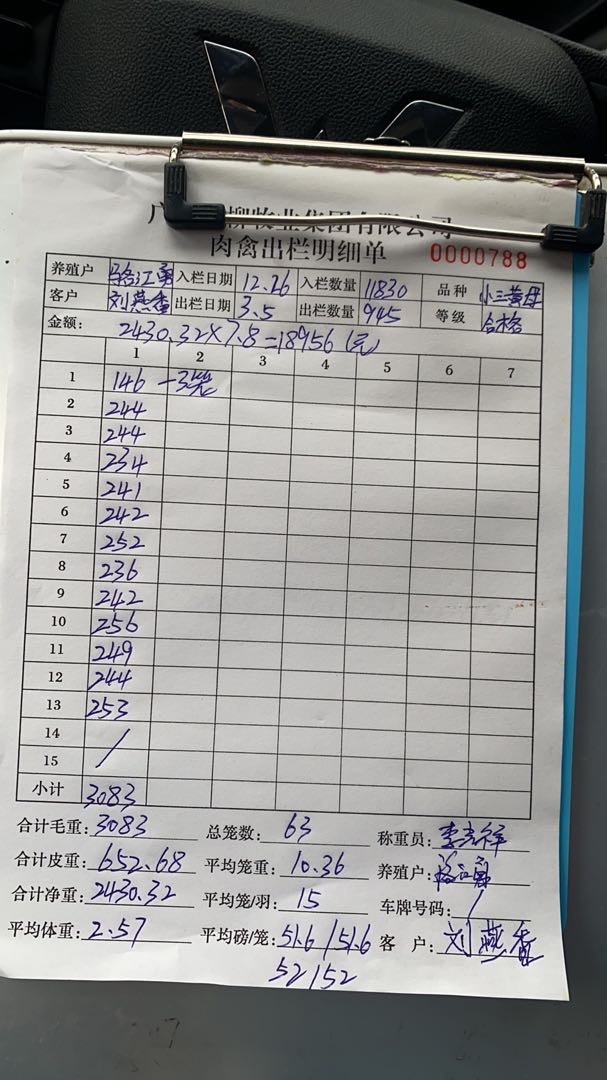 广 柳牧业集团有限公司
肉禽出栏明细单 0000788
养殖户 骆江勇 入栏日期 12.26 入栏数量 11830 品种 小三黄母
客户 刘燕香 出栏日期 3.5 出栏数量 945 等级 合格
金额: 2430.32×7.8=18956(元)
1 2 3 4 5 6 7
1 146 -3笼
2 244
3 244
4 234
5 241
6 242
7 252
8 236
9 242
10 256
11 249
12 244
13 253
14 /
15
小计 3083
合计毛重: 3083 总笼数: 63 称重员:
合计皮重: 652.68 平均笼重: 10.36 养殖户: 骆江勇
合计净重: 2430.32 平均笼/羽: 15 车牌号码: /
平均体重: 2.57 平均磅/笼: 51.6/51.6 客 户: 刘燕香
52/52